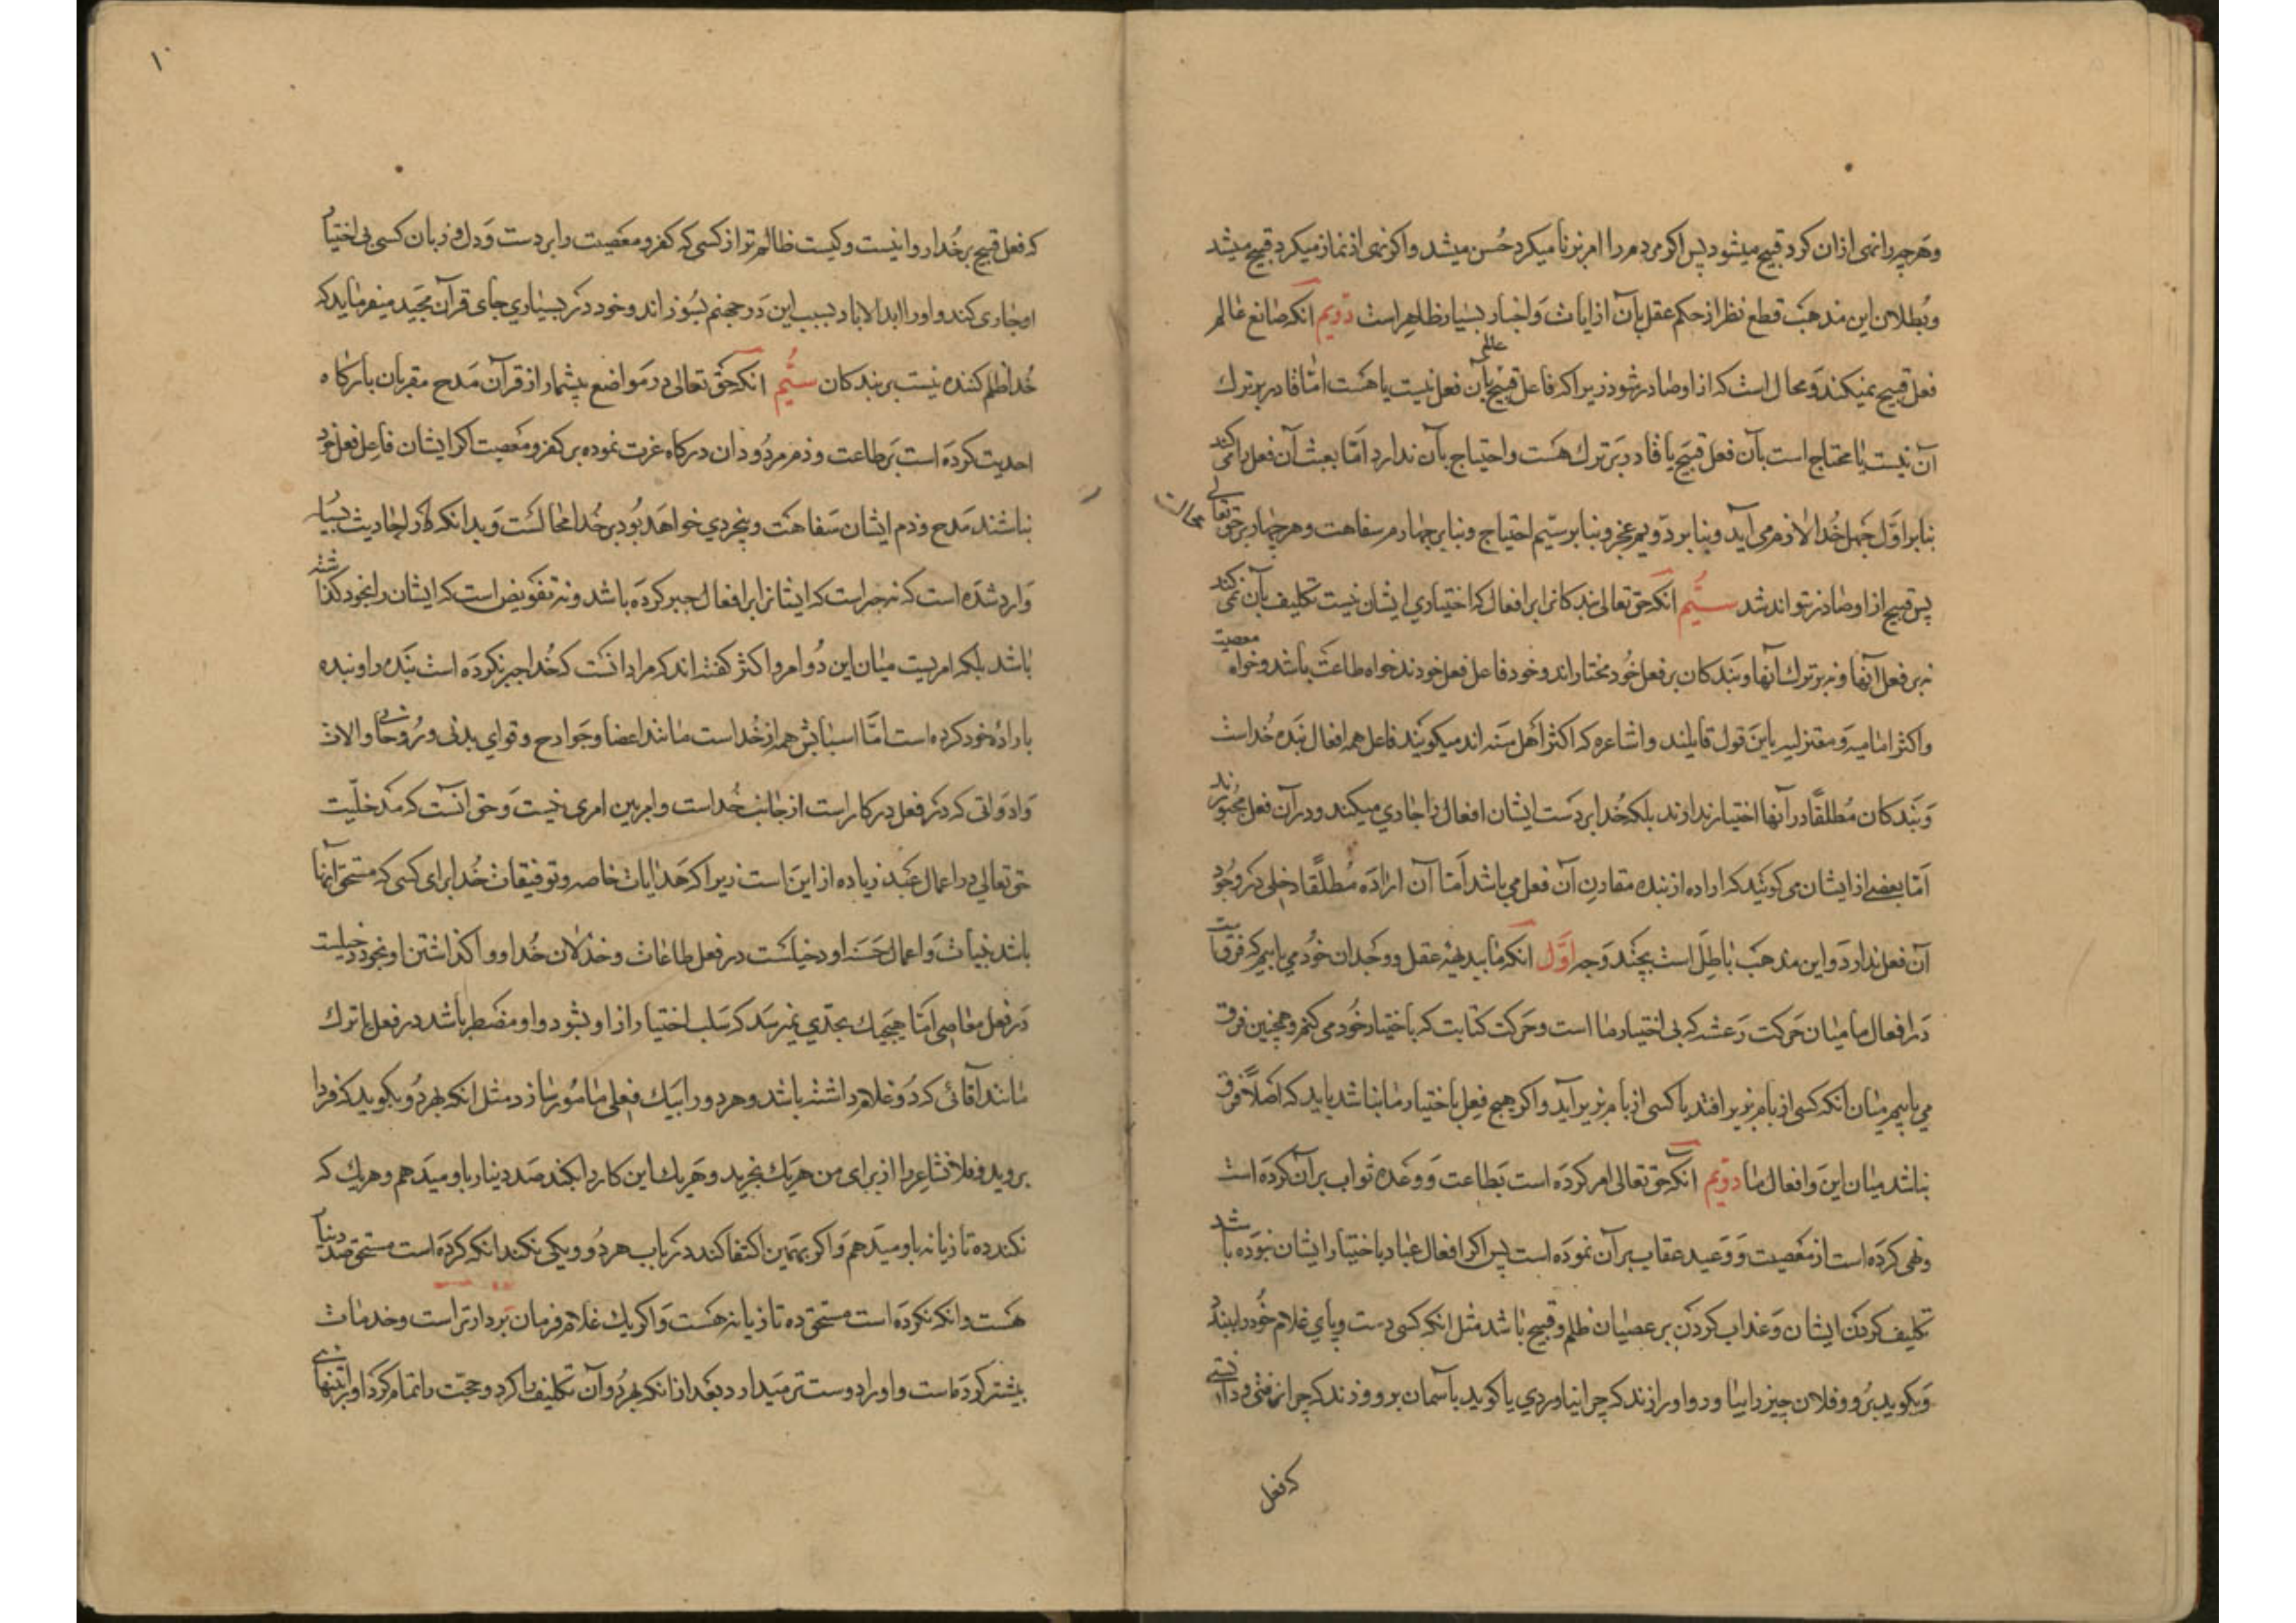 وهرچه را نهی ازان کرد قبیح میشود پس اکر مردم را امر بزنا میکرد حُسن میشد واکر نهی از نماز میکرد قبیح میشد
وبُطلان این مذهب قطع نظر از حکم عقل بآن از ایات وَاخبار بسیار ظاهر است دوّیم آنکه صانع عالم
فعل قبیح نمیکند وَمحال است که از او صادر شود زیرا که فاعل قبیح یا عالم بآن فعل نیست یا هست امّا قادر بر ترک
آن نیست یا محتاج است بآن فعل قبیح یا قادر بَر ترک هست واحتیاج بآن ندارد امّا بعبث آن فعل را می کند
بنا بر اوّل جهل خُدا لازم می آید وبنا بر دوّیم عجز وبنا بر سیّم احتیاج وبنا بر چهارم سفاهت وهر چهار بر حق تعالی محالست
پس قبیح از او صادر نتواند شد سیُّم آنکه حق تعالی بندکانرا بر افعال که اختیاری ایشان نیست تکلیف بآن نمی کند
نه بر فعل آنها ونه بر ترک آنها وبَندکان بر فعل خُود مختار اند وخود فاعل فعل خودند خواه طاعَت باشد وخواه معصیت
واکثر امامیه وَمعتزلیه باین قول قایلند واشاعره که اکثر اهل سنه اند میکویند فاعل همه افعال بَنده خُداست
وَبَندکان مُطلقًا در آنها اختیار ندارند بلکه خُدا بر دَست ایشان افعال را جاری میکند ودر آن فعل مجبورند
امّا بعضی از ایشان می کویند که اراده از بنده مقارن آن فعل می باشد اَمّا آن ارادَه مُطلقًا دخلی در وجُود
آن فعل ندارد وَاین مذهب باطل است بچند وَجه اوَّل آنکه ما ببدیهه عقل ووجدان خُود می یابیم که فرقیست
دَر افعال ما میان حَرکت رَعشه که بی اختیار ما است وحَرکت کتابت که باختیار خُود می کنیم وهمچنین فرق
می یابیم میان آنکه کسی از بام بزیر افتد یا کسی از بام بزیر آید واکر هیچ فعل باختیار ما نباشد باید که اَصلًا فرق
نباشد میان این وَافعال ما دوّیم آنکه حق تعالی امر کردَه است بَطاعت وَوَعده ثواب بر آن کردَه است
ونهی کردَه است از معَصیت وَوَعید عقاب بر آن نمودَه است پس اکر افعال عباد باختیار ایشان نبوَده باشد
تکلیف کردن ایشان وَعذاب کردن بر عصیان ظلم وقبیح باشد مثل آنکه کسی دست وپای غلام خُود را ببندد
وَبکوید بُرو وفلان چیز را بیاور واو را زند که چرا نیاوردی یا کوید بآسمان برو وزند که چرا نرفتی ودانستی
که فعل
۱۰
که فعل قبیح بر خُدا روا نیست وکیست ظالم تر از کسی که کفر ومعَصیت را بر دست وَدل وزبان کسی بی اختیار
او جاری کند واو را ابد الاباد بسبب این دَر جهنم بسُوزاند وخود در بسیاری جای قرآن مجَید میفرماید که
خُدا ظلم کننده نیست بر بندکان سیُّم آنکه حَق تعالی در مواضع بیشمار از قرآن مَدح مقربان بارکاه
احدیت کردَه است بَر طاعت وذم مردُودان درکاه عزت نموده بر کفر ومعَصیت اکر ایشان فاعِل فعل خود
نباشند مَدح وذم ایشان سَفاهَت وبیخردی خواهَد بُود بر خُدا محالست وَبدانکه در احادیث بسیار
وَارد شدَه است که نه جبر است که ایشانرا بر افعال جبر کردَه باشد ونه تفویض است که ایشان را بخود کذاشته
باشد بلکه امریست میان این دُو امر واکثر کفته اند که مراد آنست که خُدا جبر نکردَه است بَنده را وبنده
بارادۀ خود کرده است امّا اسبابش همه از خُداست مانند اعضا وجَوارح وقوای بدنی ورُوحانی والات
وَادَواتی که دَر فعل در کار است از جانب خُداست وامر بین امری نیست وَحق آنست که مَدخلیّت
حق تعالی در اعمال عَبد زیاده از این است زیرا که هَدایات خاصه وتوفیقات خُدا برای کسی که مستحق آنها
باشد بنیات وَاعمال حَسَنه او دخیلست در فعل طاعات وخذلان خُدا وواکذاشتن او بخود دخیلست
دَر فعل معَاصی امّا هیچیک بحدّی نمیرسَد که سَلب اختیار از او بشود واو مضَطر باشد در فعل یا ترک
مانند آقائی که دُو غلام داشته باشد وهر دو را بیَک فعلی مامُور سازد مثل آنکه بهر دُو بکوید که فردا
بروید وفلان متاع را از برای من هریَک بخرید وهَریک این کار را بکند صَد دینار باو میدَهم وهریک که
نکند ده تازیانه باو میدَهم وَاکر بهَمین اکتفا کند در باب هر دُو ویکی بکند آنکه کردَه است مستحق صد دینار
هَست وانکه نکردَه است مستحق ده تازیانه هَست وَاکر یک غلام فرمان بَردارتر است وخدمات
بیشتر کردَه است واو را دوست تر میدَارد وبعَد از آنکه بهر دُو آن تکلیف را کرد وحجت را تمام کرد او را تنهائی